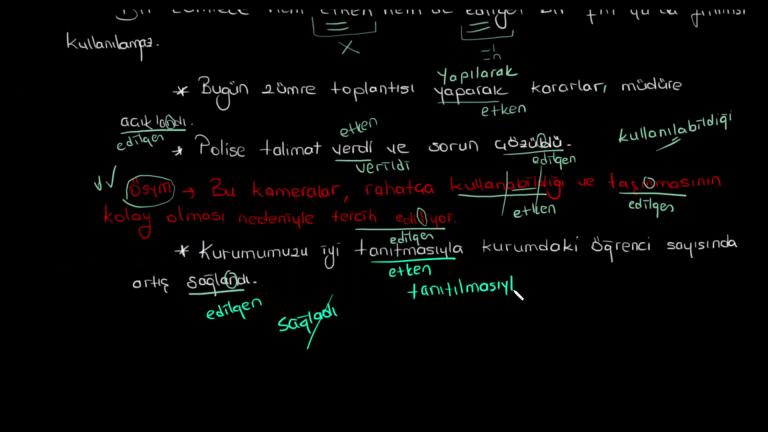 Bir cümlede hem etken hem de edilgen bir fiil ya da fiilimsi
kullanılamaz.
x
yapılarak
* Bugün zümre toplantısı yaparak kararları, müdüre
etken
açıklandı.
edilgen
etken
* Polise talimat verdi ve sorun çözüldü.
verildi
edilgen
kullanılabildiği
√√ ösym → Bu kameralar, rahatça kullanabildiği ve taşınmasının
etken
edilgen
kolay olması nedeniyle tercih ediliyor.
edilgen
* Kurumumuzu iyi tanıtmasıyla kurumdaki öğrenci sayısında
etken
artış sağlandı.
edilgen
tanıtılmasıyl
sağladı